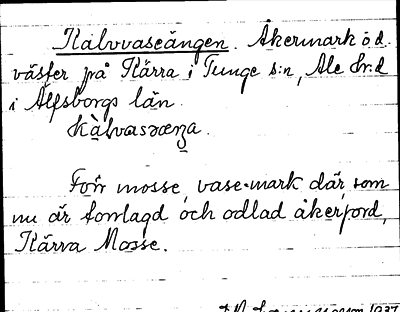 Kalvvaseängen. Åkermark o d.
väster på Kärra i Tunge s:n, Ale hrd
i Älfsborgs län.
Förr mosse, vase-mark där, som
nu är torrlagd och odlad åkerjord,
Kärra Mosse.
1937